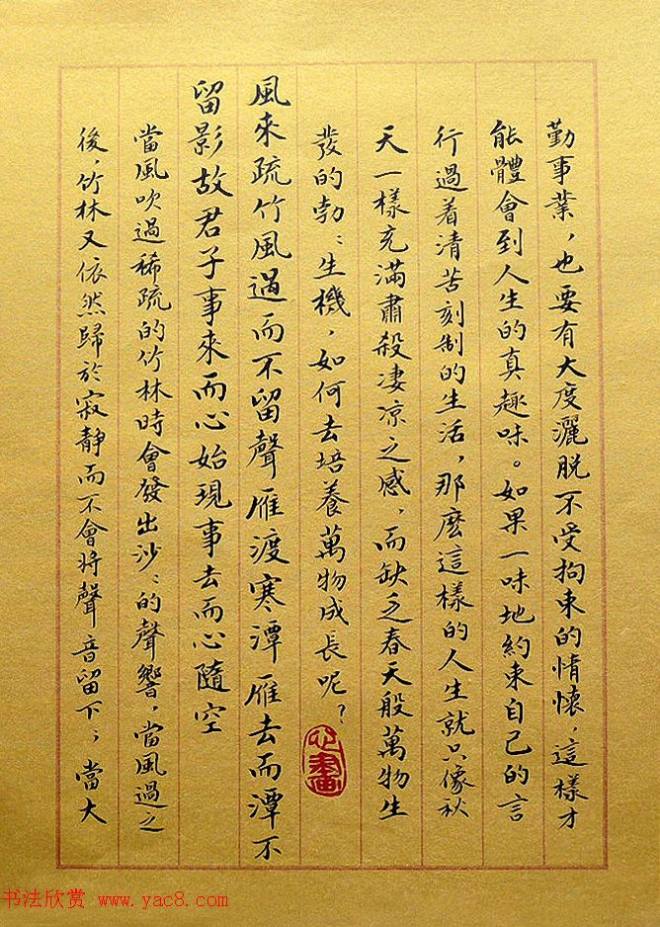 勤事業，也要有大度灑脱不受拘束的情懷，這樣才
能體會到人生的真趣味。如果一味地約束自己的言
行過着清苦刻制的生活，那麽這樣的人生就只像秋
天一樣充滿肅殺凄凉之感，而缺乏春天般萬物生
發的勃：生機，如何去培養萬物成長呢？
風來疏竹風過而不留聲雁渡寒潭雁去而潭不
留影故君子事來而心始現事去而心隨空
當風吹過稀疏的竹林時會發出沙：的聲響，當風過之
後，竹林又依然歸於寂靜而不會將聲音留下；當大
书法欣赏 www.yac8.com